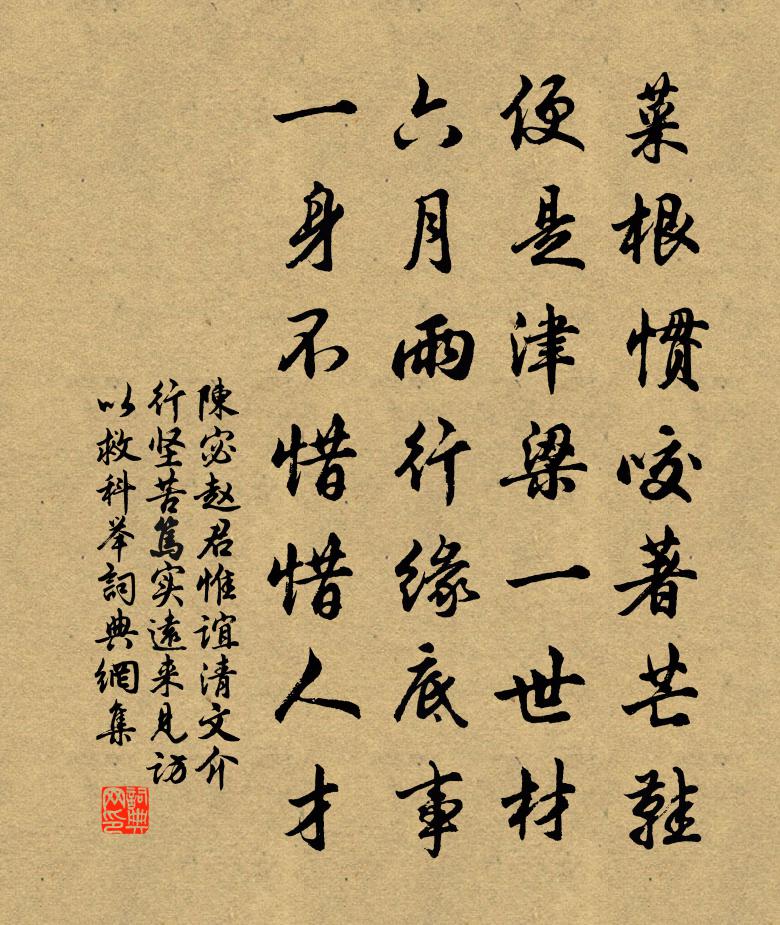 菜根惯咬著芒鞋
便是津梁一世材
六月雨行缘底事
一身不惜惜人才
陳宓赵君惟谊清文介
行坚苦篤实遠来見访
以救科举詞典網集
詞典网印